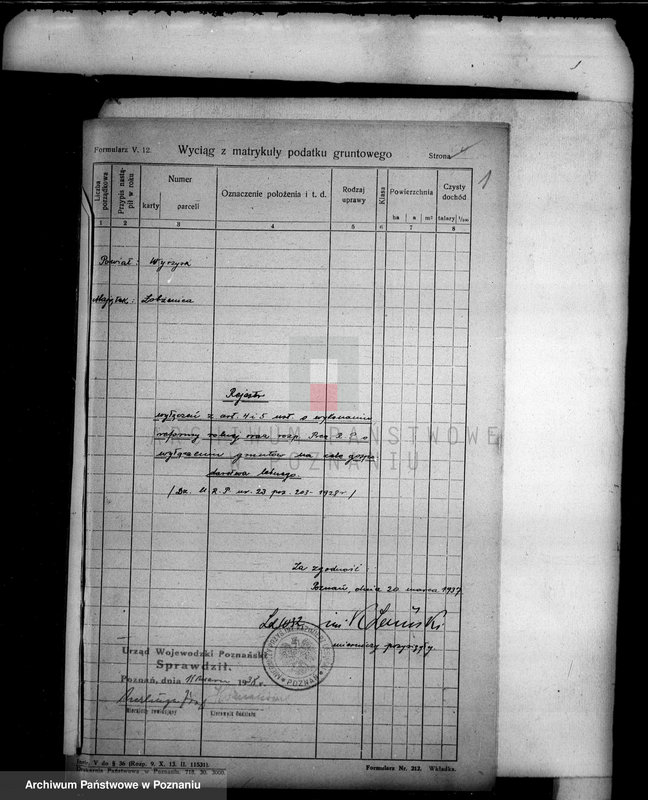 Formularz V. 12.
Wyciąg z matrykuły podatku gruntowego
Strona
1
Liczba porządkowa
Przypis nastąpił w roku
Numer
karty
parceli
Oznaczenie położenia i t. d.
Rodzaj uprawy
Klasa
Powierzchnia
ha a m²
Czysty dochód
talary 1/100
1 2 3 4 5 6 7 8
Powiat: Wyrzysk
Majątek: Łobżenica
Rejestr
wyłączeń z art. 4 i 5 ust. o wykonaniu
reformy rolnej oraz rozp. Prez. R. P. o
wyłączeniu gruntów na cele gospo
darstwa leśnego.
/ Dz. U. R. P. nr. 23 poz. 203 - 1928 r /
ARCHIWUM PAŃSTWOWE
W POZNANIU
Za zgodność:
Poznań, dnia 20 marca 1937.
mierniczy przysięgły.
Urząd Wojewodzki Poznański
Sprawdził.
Poznań, dnia 11 1938 r.
POZNAŃ
Instr. V do § 36 (Rozp. 9. X. 13. II. 11531).
Drukarnia Państwowa w Poznaniu. 718. 30. 3000.
Formularz Nr. 212. Wkładka.
Archiwum Państwowe w Poznaniu